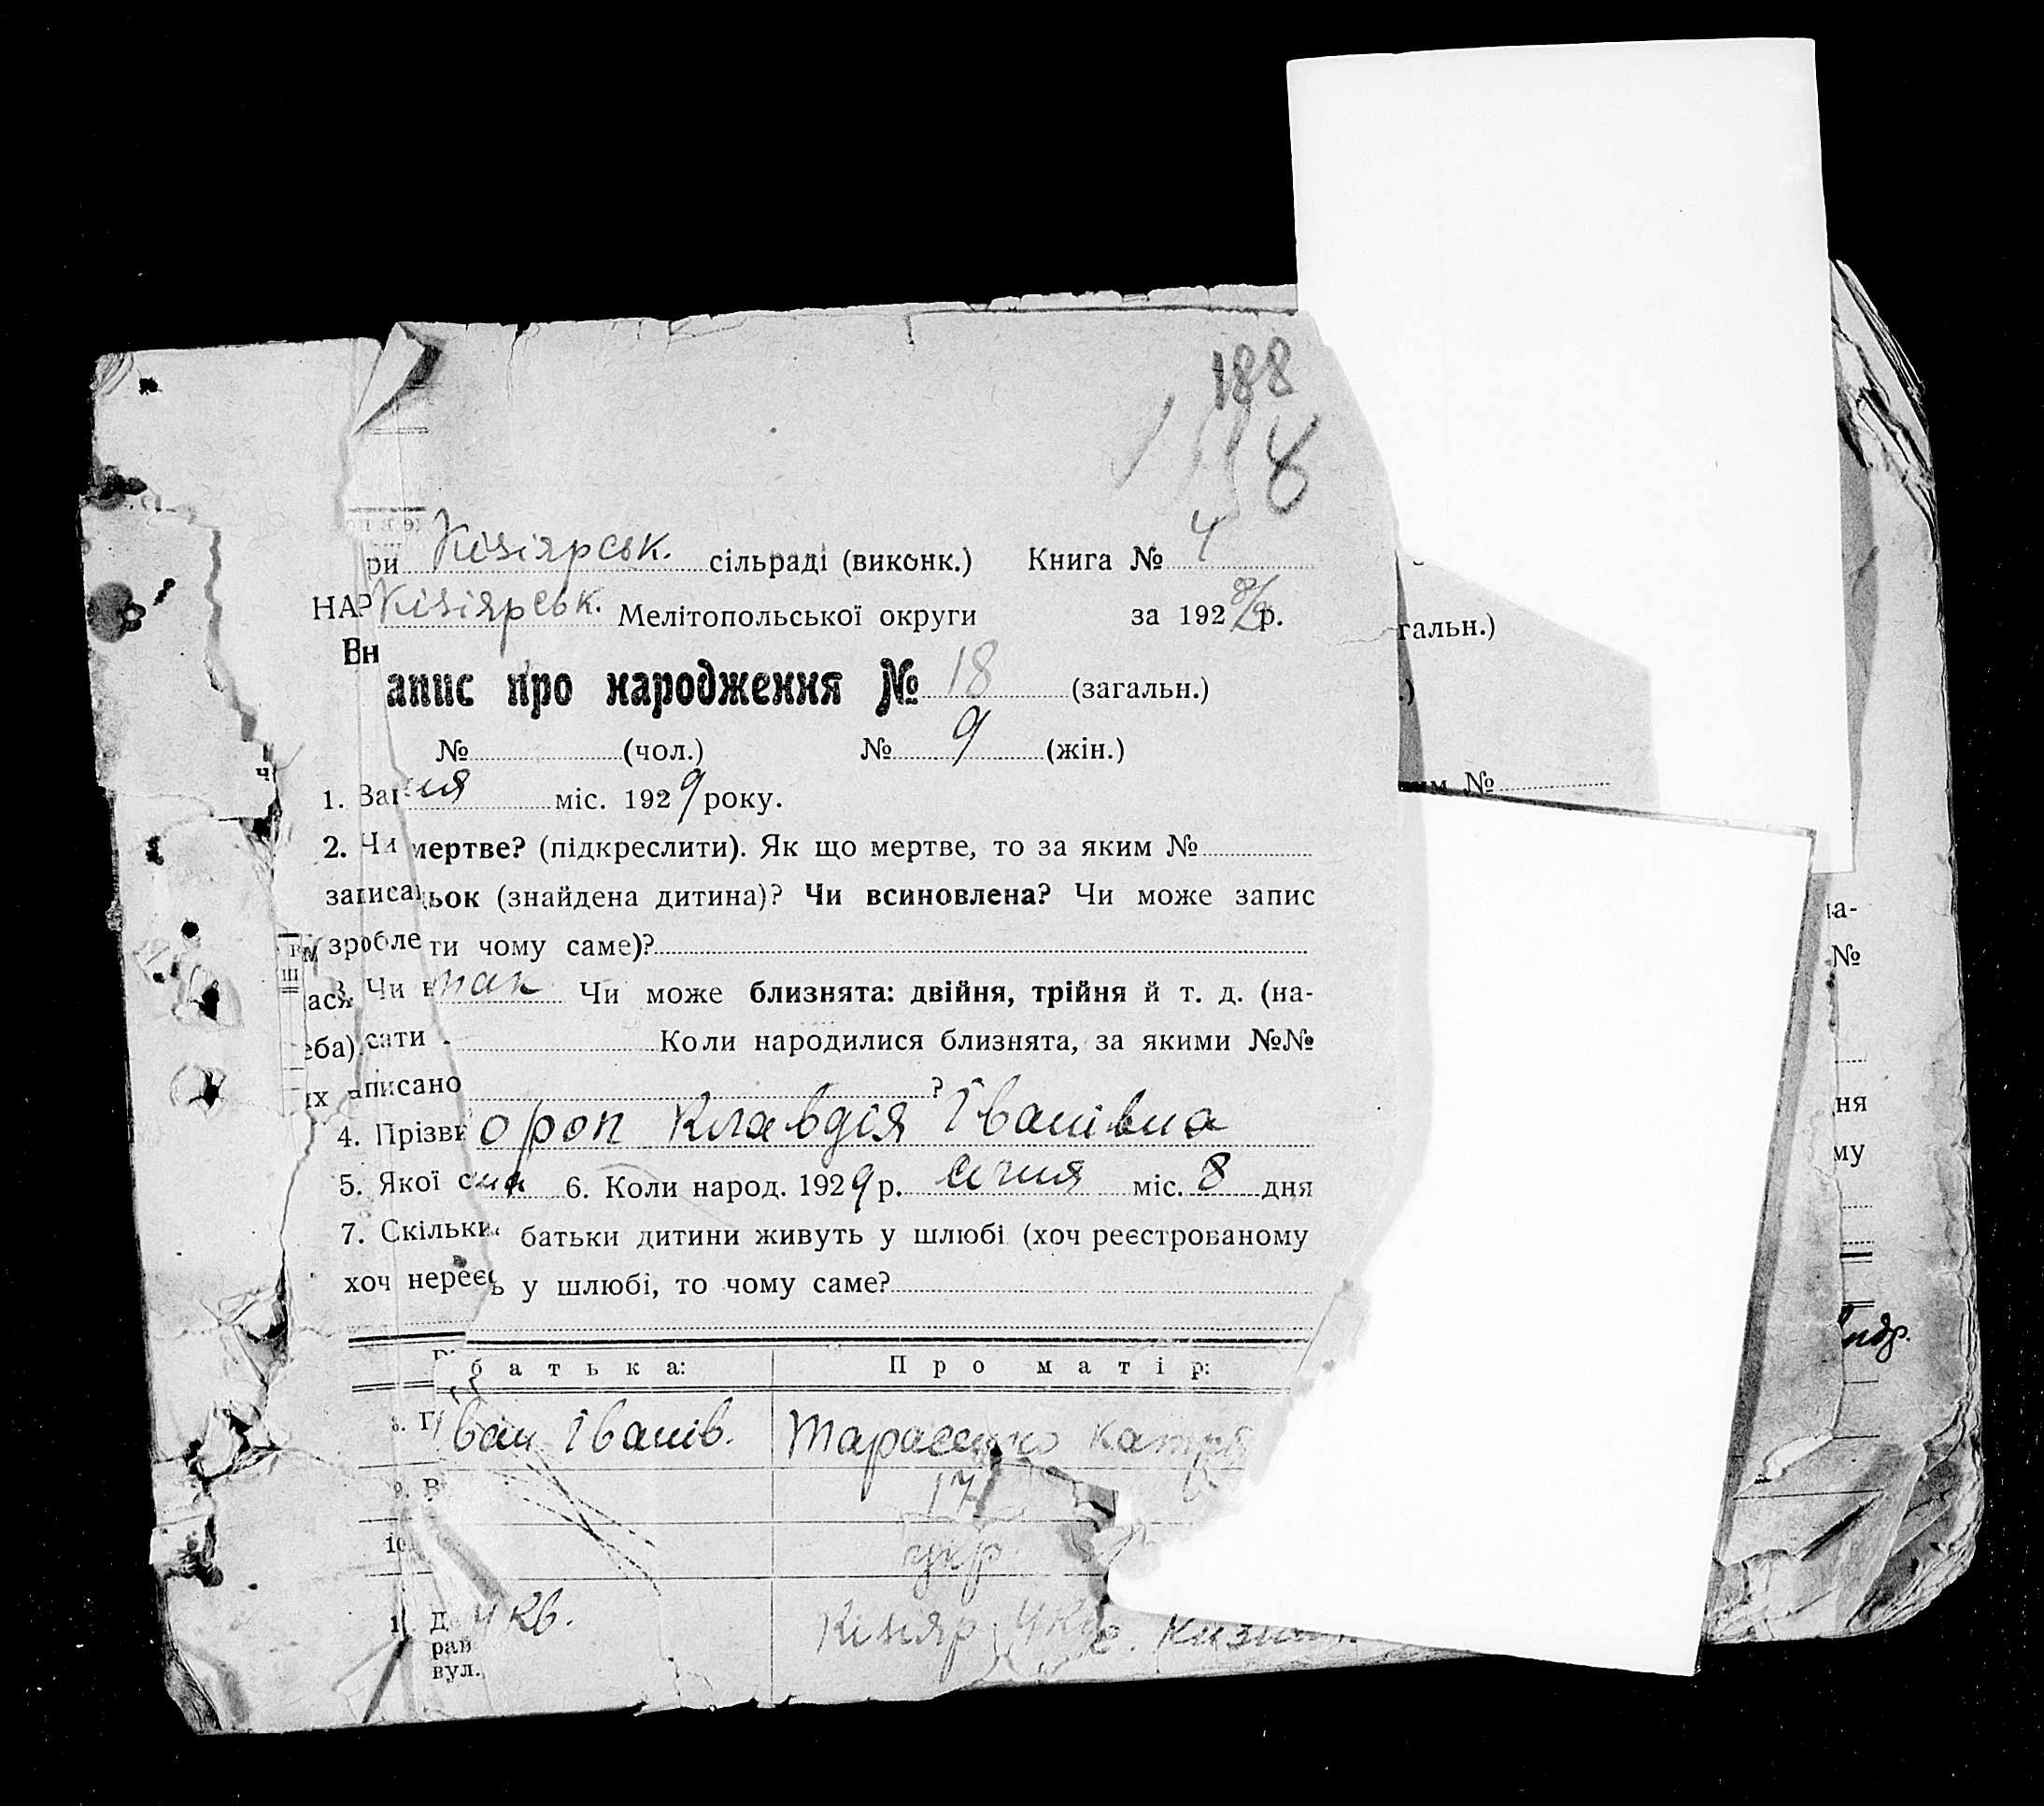 188
8
ри Кізіярськ. сільраді (виконк.) Книга № 4
НАР Кізіярськ. Мелітопольської округи за 1928/9р.
Вн
гальн.)
апис про народження № 18 (загальн.)
№ (чол.) № 9 (жін.)
1. За ня міс. 1929 року.
им №
2. Чи мертве? (підкреслити). Як що мертве, то за яким №
записа ьок (знайдена дитина)? Чи всиновлена? Чи може запис
зробле ти чому саме)?
ася Чи так Чи може близнята: двійня, трійня й т. д. (на-
еба) сати Коли народилися близнята, за якими №№
их писано ?
4. Прізв ороп Клавдія Іванівна
5. Якої с 6. Коли народ. 1929 р. січня міс. 8 дня
7. Скільки батьки дитини живуть у шлюбі (хоч реєстрованому
хоч нереє ь у шлюбі, то чому саме?
батька: Про матір:
8. П Іван Іванів. Тарасенко Катря
9. В 17
10. укр.
1 . Д 4 кв. Кізіяр 4 кв.
рай
вул.
на-
№
ня
му